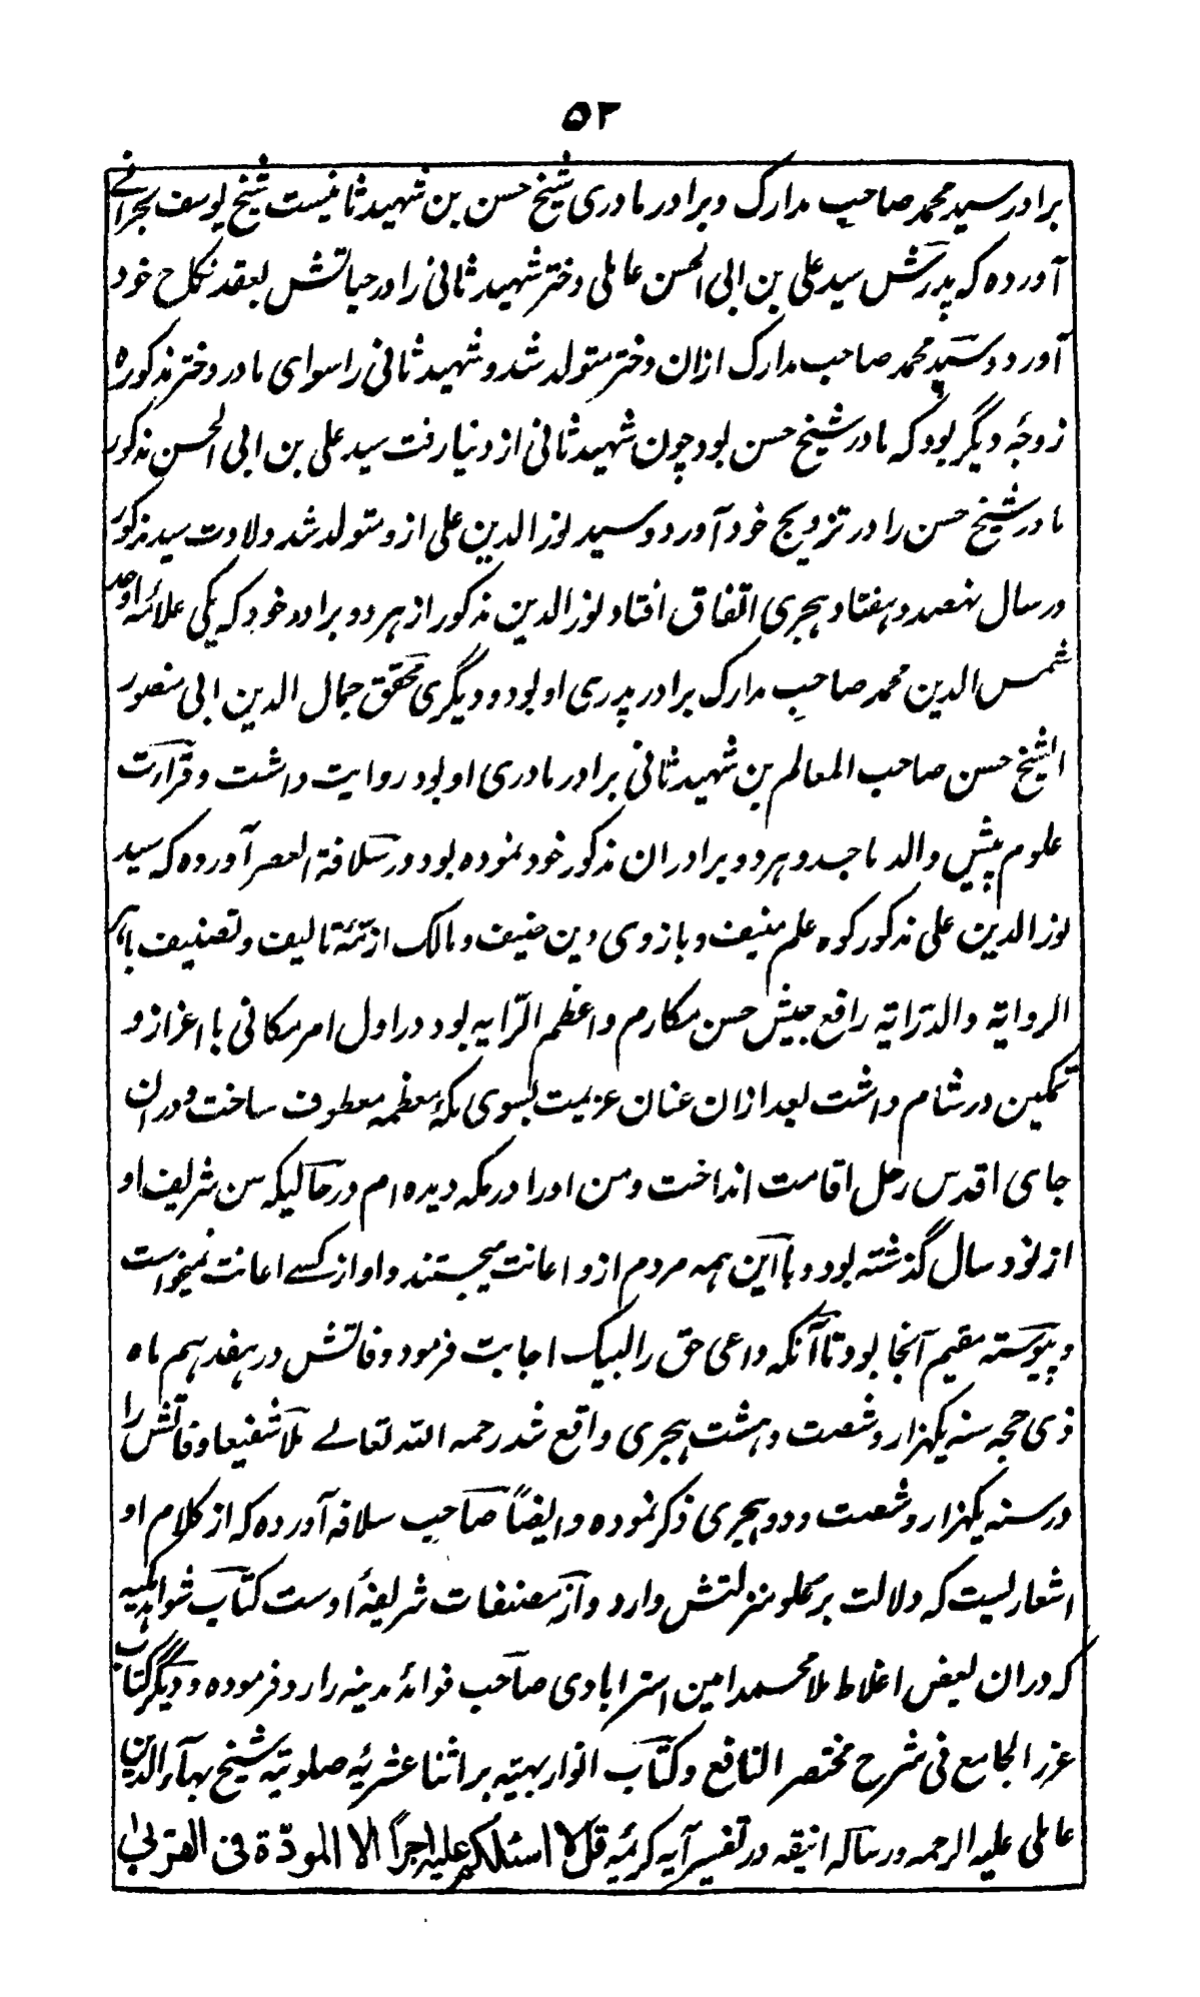 ۵۲
برادر سید محمد صاحب مدارک و برادر مادری شیخ حسن بن شهید ثانیست شیخ یوسف بحرانے
آورده که پدرش سید علی بن ابی الحسن عاملی دختر شهید ثانی را در حیاتش بعقد نکاح خود
آورد و سید محمد صاحب مدارک ازان دختر متولد شد و شهید ثانی را سوای مادر دختر مذکوره
زوجهٔ دیگر بود که مادر شیخ حسن بود چون شهید ثانی از دنیا رفت سید علی بن ابی الحسن مذکور
مادر شیخ حسن را در تزویج خود آورد و سید نور الدین علی ازو متولد شد ولادت سید مذکور
در سال نهصد و هفتاد هجری اتفاق افتاد نور الدین مذکور از هر دو برادر خود که یکی علامهٔ اوحد
شمس الدین محمد صاحب مدارک برادر پدری او بود و دیگری محقق جمال الدین ابی منصور
الشیخ حسن صاحب المعالم بن شهید ثانی برادر مادری او بود روایت داشت و قرارت
علوم پیش والد ماجد و هر دو برادران مذکور خود نموده بود در سلافة العصر آورده که سید
نور الدین علی مذکور کوه علم منیف و بازوی دین حنیف و مالک ازمّهٔ تالیف و تصنیف
الروایة والدرایة رافع جیش حسن مکارم و اعظم الرّایه بود در اول امر مکانی با اعزاز و
تمکین در شام داشت بعد ازان عنان عزیمت بسوی مکهٔ معظمه معطوف ساخت و دران
جای اقدس رحل اقامت انداخت و من او را در مکه دیده ام در حالیکه سن شریف او
از نود سال گذشته بود و با این همه مردم ازو اعانت میجستند و او از کسے اعانت نمیخواست
و پیوسته مقیم آنجا بود تا آنکه داعی حق را لبیک اجابت فرمود وفاتش در هفدهم ماه
ذی حجه سنه یکهزار و شصت و هشت هجری واقع شد رحمه الله تعالے ملا شفیعا وفاتش را
در سنه یکهزار و شصت و دو هجری ذکر نموده و ایضاً صاحب سلافه آورده که از کلام او
اشعاریست که دلالت بر علو منزلتش دارد و از مصنفات شریفهٔ اوست کتاب شواهد مکیه
که دران بعض اغلاط ملا محمد امین استرابادی صاحب فوائد مدینه را رد فرموده و دیگر کتاب
غرر الجامع فی شرح مختصر النافع و کتاب انوار بهیّه بر اثنا عشریهٔ صلوتیهٔ شیخ بهاء الدین
عاملی علیه الرحمه و رساله انیقه در تفسیر آیه کریمهٔ قل لا اسئلکم علیه اجراً الا المودّة فی القربیٰ